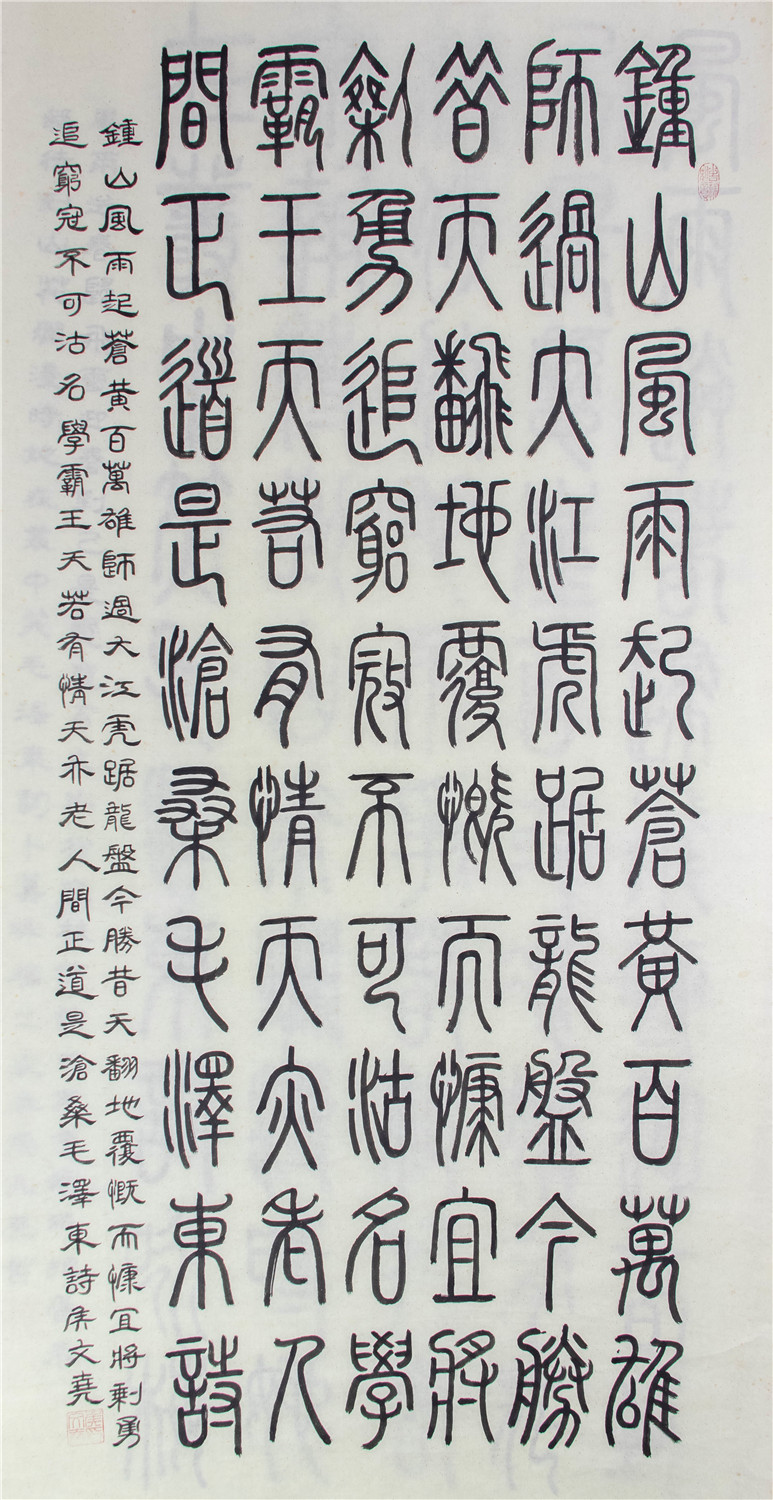 鍾山風雨起蒼黃百萬雄
師過大江虎踞龍盤今勝
昔天翻地覆慨而慷宜將
剩勇追窮寇不可沽名學
霸王天若有情天亦老人
間正道是滄桑毛澤東詩
鍾山風雨起蒼黃百萬雄師過大江虎踞龍盤今勝昔天翻地覆慨而慷宜將剩勇
追窮寇不可沽名學霸王天若有情天亦老人間正道是滄桑毛澤東詩侯文堯